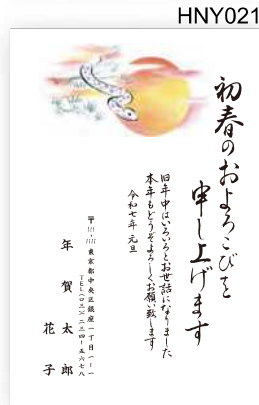 HNY021
初春のおよろこびを
申し上げます
旧年中はいろいろとお世話になりました
本年もどうぞよろしくお願い致します
令和七年 元旦
東京都中央区銀座一丁目一ー一
TEL(〇三)一二三四ー五六七八
年賀太郎
花子